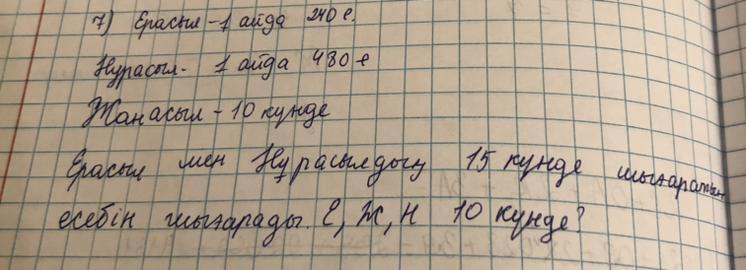 7) Ерасыл - 1 айда 240 е.
Нурасыл - 1 айда 480 е
Жанасыл - 10 күнде
Ерасыл мен Нұрасылдың 15 күнде шығаратын
есебін шығарады. Е, Ж, Н 10 күнде?